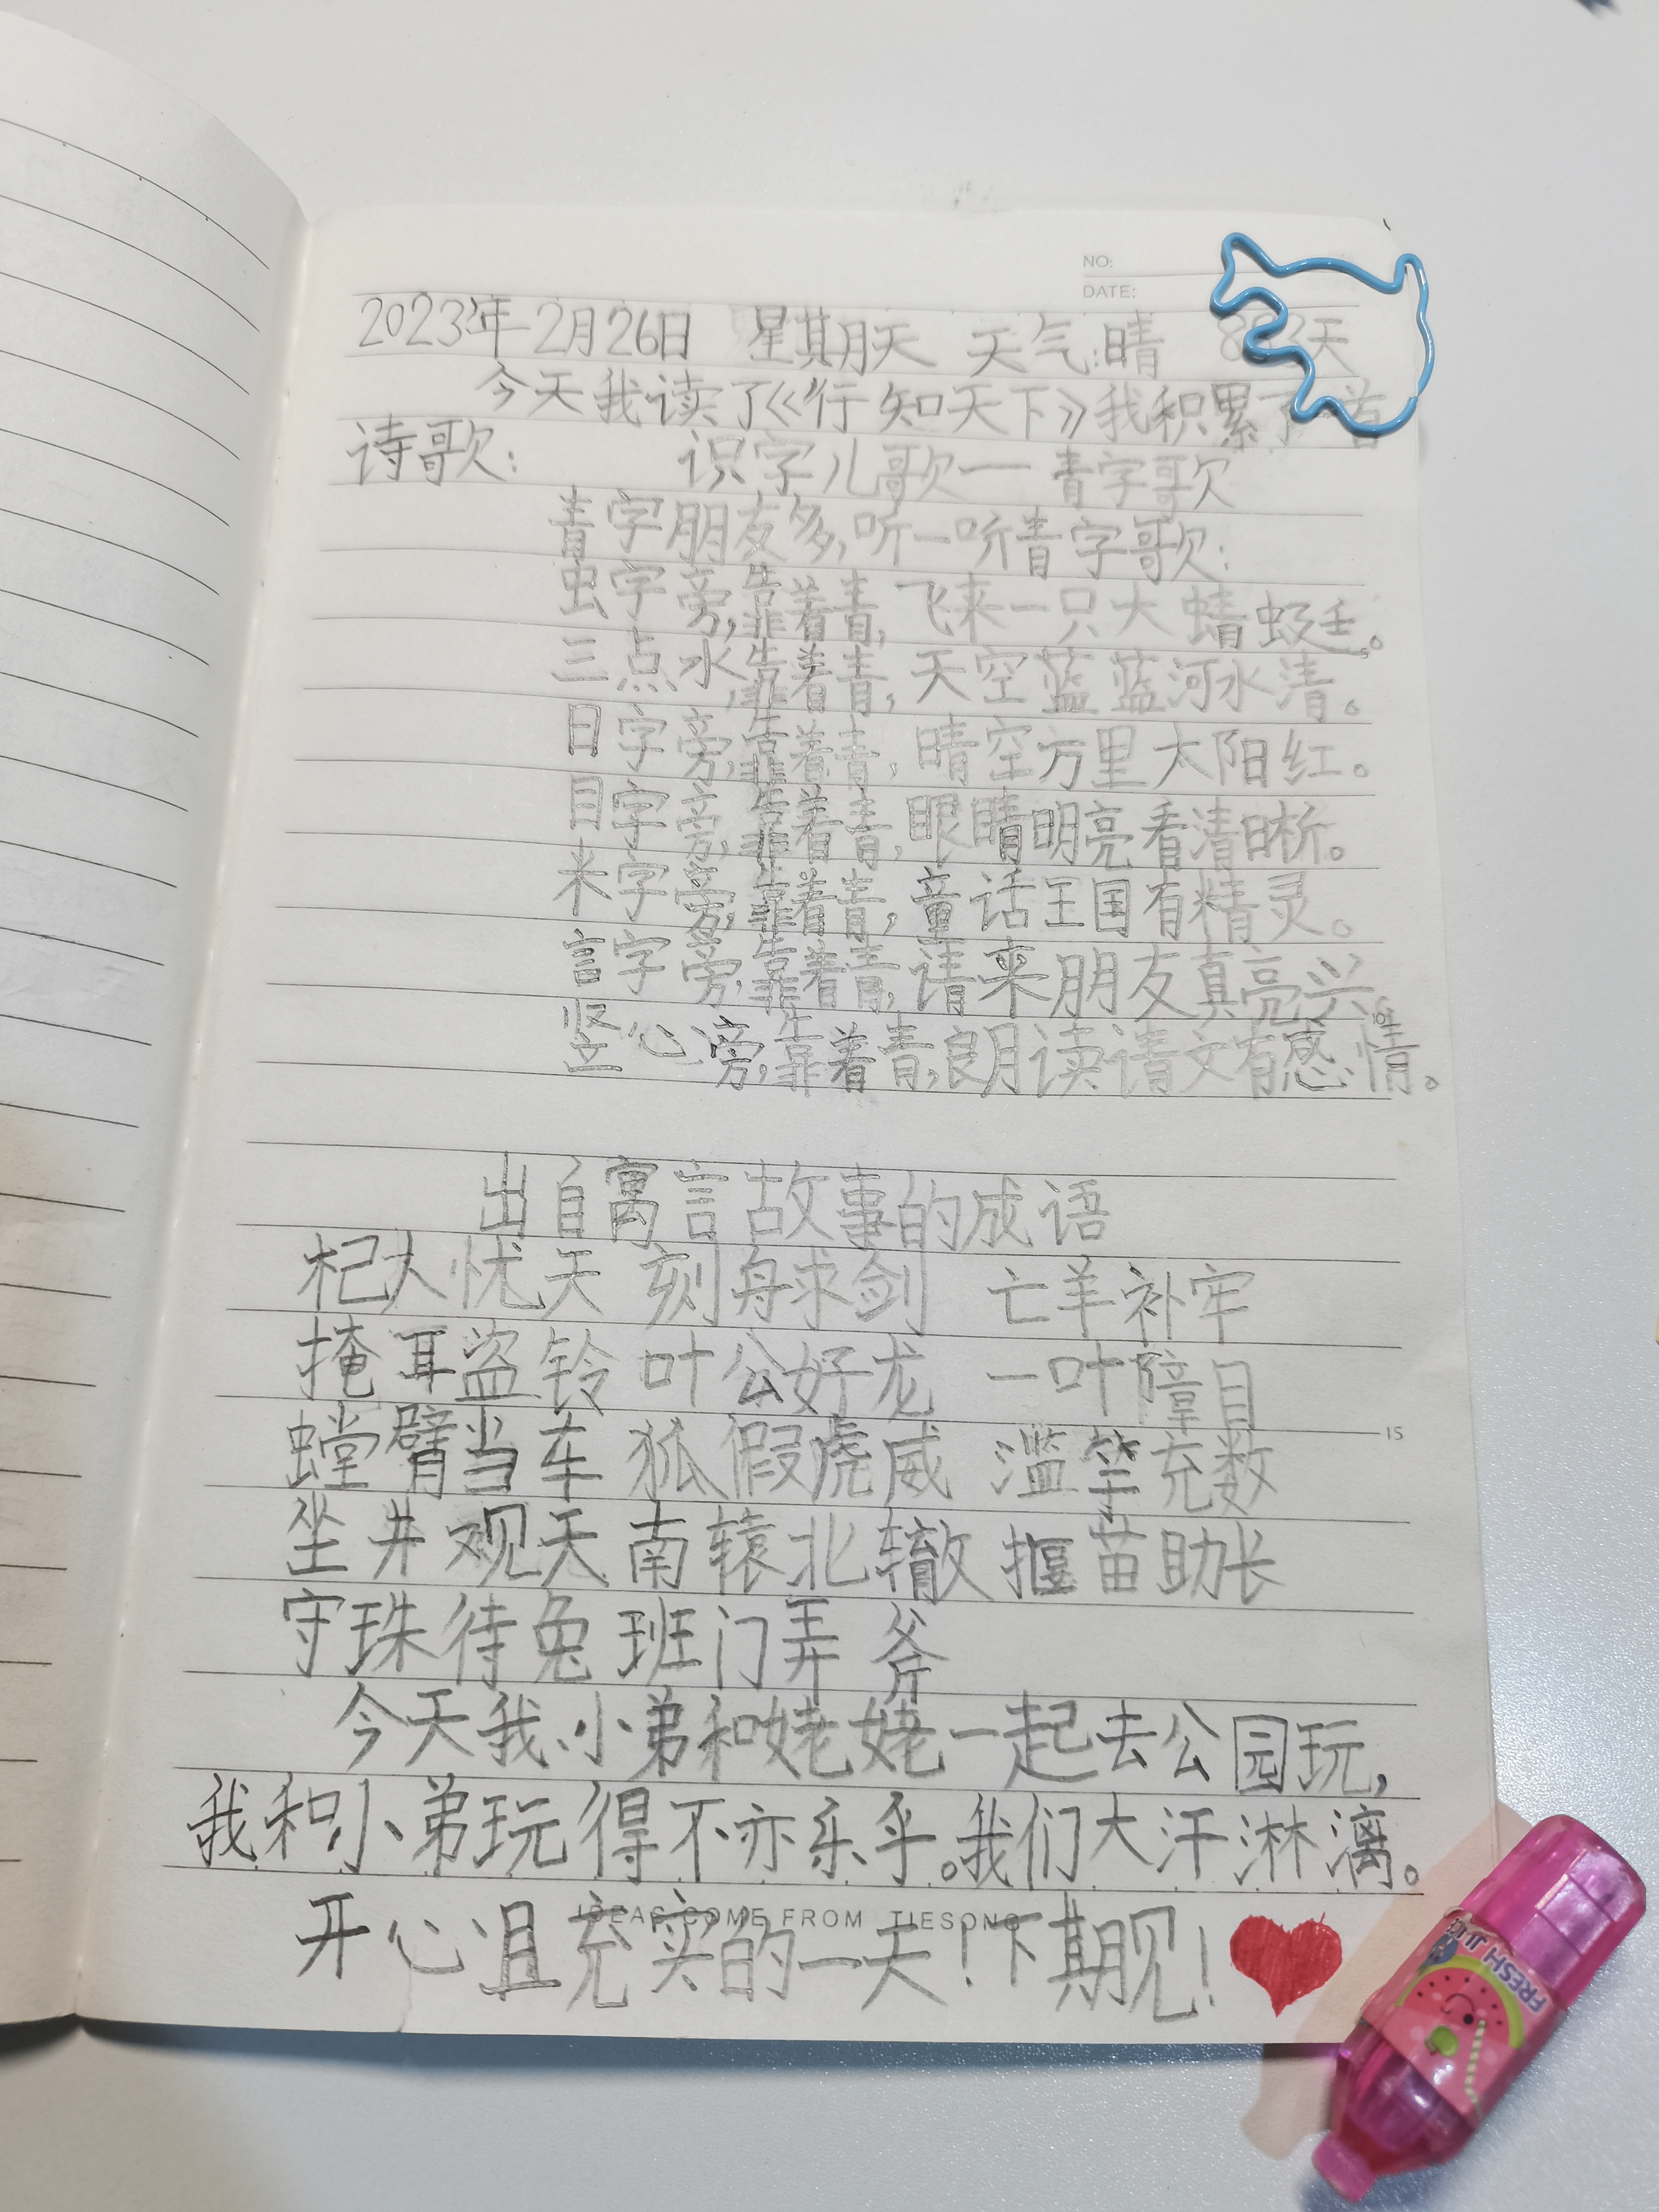 NO:
DATE:
2023年2月26日 星期天 天气:晴 天
今天我读了《行知天下》我积累了一首
诗歌: 识字儿歌一青字歌
青字朋友多,听一听青字歌:
虫字旁,靠着青,飞来一只大蜻蜓。
三点水,靠着青,天空蓝蓝河水清。
日字旁,靠着青,晴空万里太阳红。
目字旁,靠着青,眼睛明亮看清晰。
米字旁,靠着青,童话王国有精灵。
言字旁,靠着青,请来朋友真亮兴
竖心旁,靠着青,朗读请文有感情。
出自寓言故事的成语
杞人忧天 刻舟求剑 亡羊补牢
掩耳盗铃 叶公好龙 一叶障目
螳臂当车 狐假虎威 滥竽充数
15
坐井观天 南辕北辙 揠苗助长
守珠待兔 班门弄斧
今天我、小弟和姥姥一起去公园玩,
我和小弟玩得不亦乐乎。我们大汗淋漓。
IDEAS COME FROM TIESONG
开心且充实的一天!下期见!
FRESH JUIC